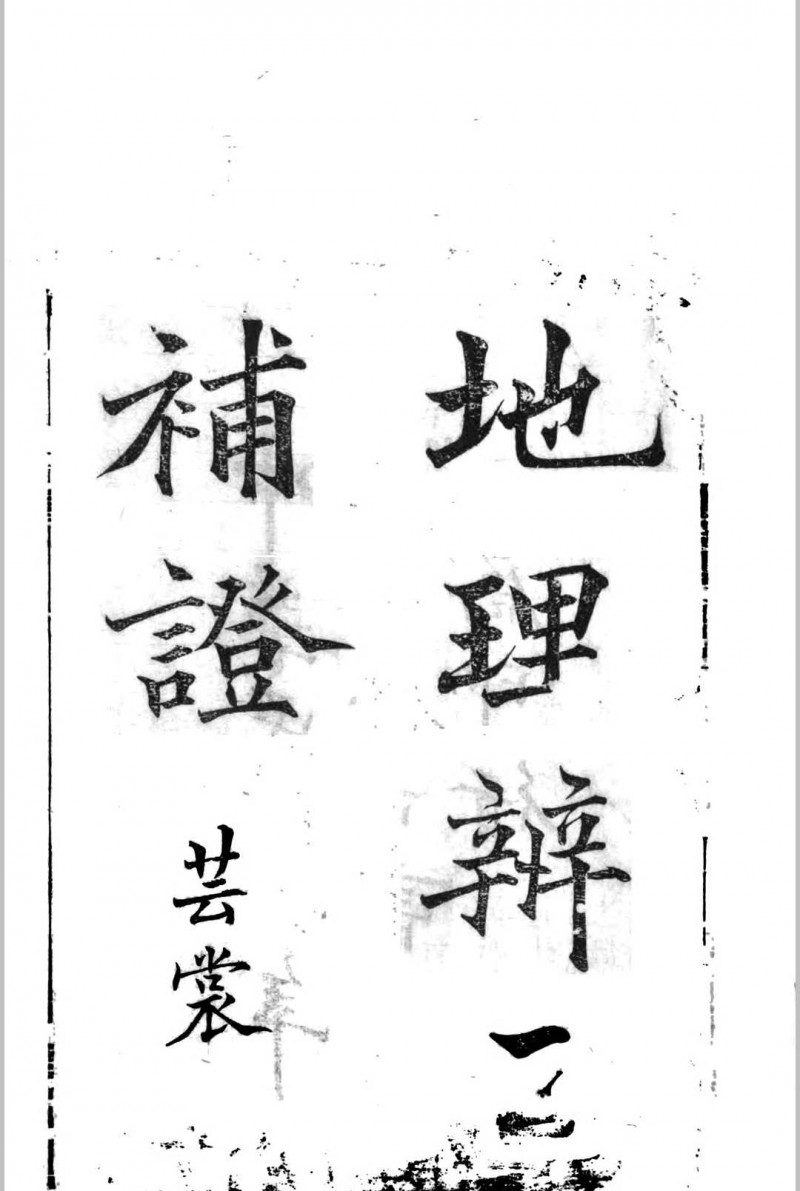 地理辨
補證 芸裳